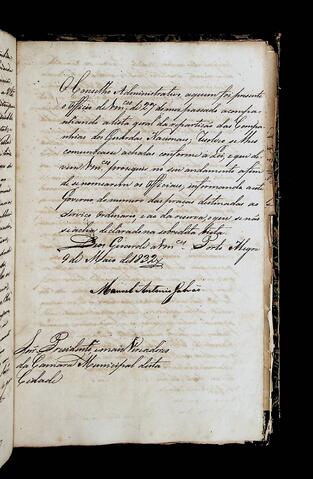 O Conselho Administrativo a quem foi presente
o Officio de Vm.ces de 27 do mez passado acompa-
nhando a lista geral da repartição das Compa-
nhias das Guardas Nacionaes,
conforme a Lei, e que de-
vem Vm.ces proseguir no seu andamento a fim
de se nomearem os Officiaes, informando a este
Governo do numero das praças destinadas ao
Serviço Ordinario, e ao da reserva, o que se não
acha declarado na sobredita lista.
Deos Guarde a Vm.ces Porto Alegre
9 de Maio de 1832
Manoel Antonio Galvão
Snr.es Presidente e mais Vereadores
da Camara Municipal desta
Cidade